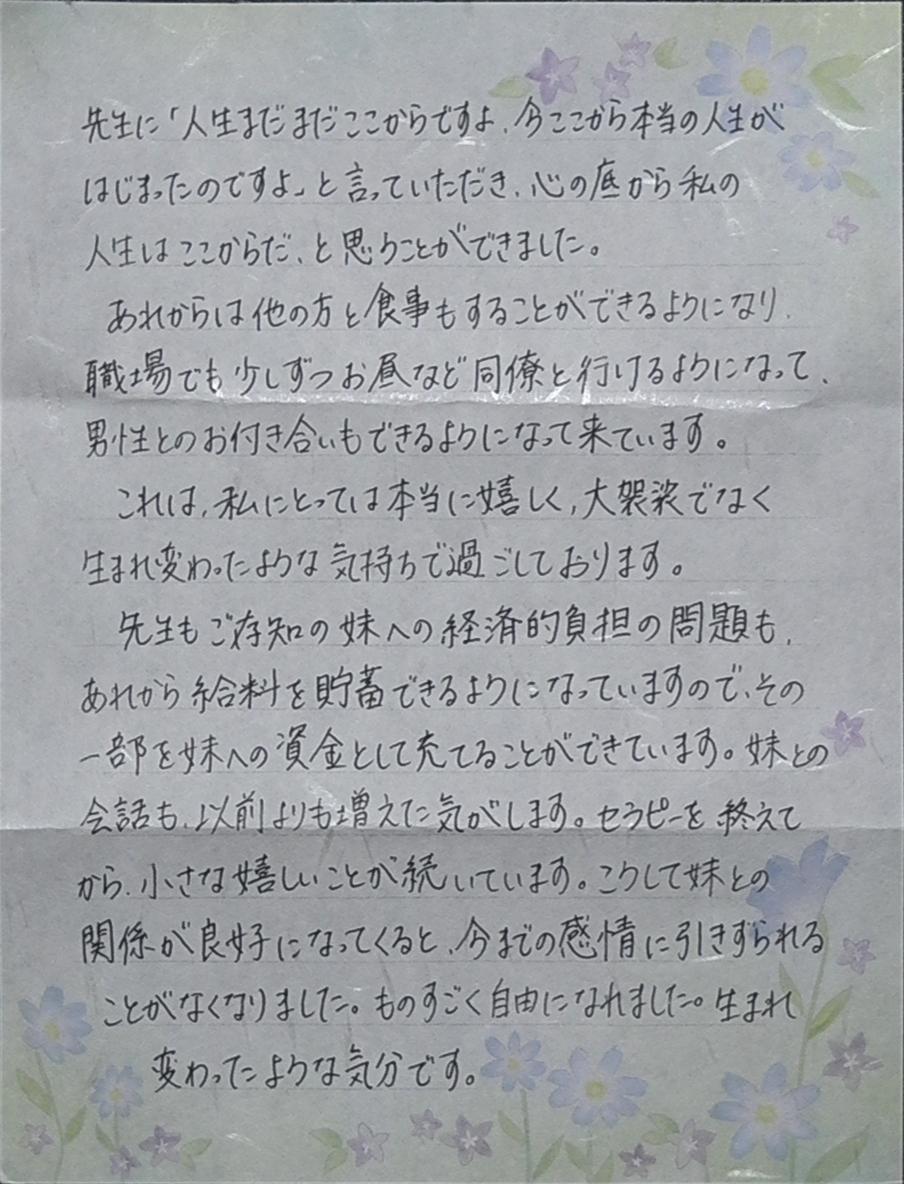 先生に「人生まだまだここからですよ、今ここから本当の人生が
はじまったのですよ」と言っていただき、心の底から私の
人生はここからだ、と思うことができました。
あれからは他の方と食事もすることができるようになり、
職場でも少しずつお昼など同僚と行けるようになって、
男性とのお付き合いもできるようになって来ています。
これは、私にとっては本当に嬉しく、大袈裟でなく
生まれ変わったような気持ちで過ごしております。
先生もご存知の妹への経済的負担の問題も、
あれから給料を貯蓄できるようになっていますので、その
一部を妹への資金として充てることができています。妹との
会話も、以前よりも増えた気がします。セラピーを終えて
から、小さな嬉しいことが続いています。こうして妹との
関係が良好になってくると、今までの感情に引きずられる
ことがなくなりました。ものすごく自由になれました。生まれ
変わったような気分です。